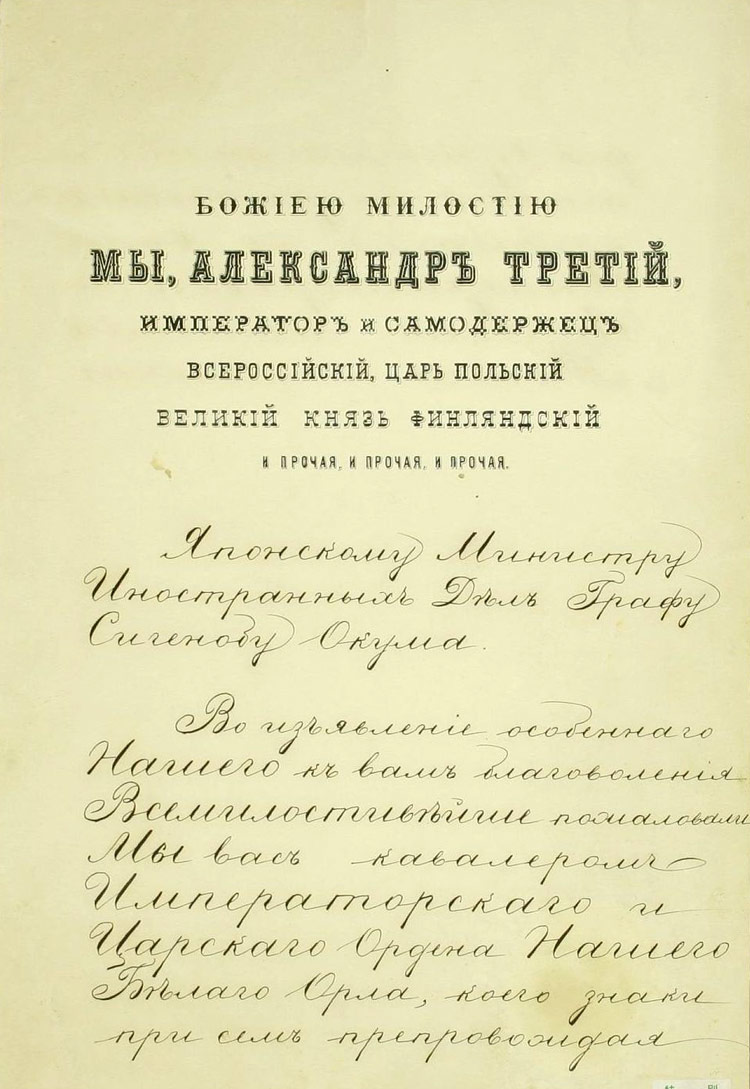 БОЖІЕЮ МИЛОСТІЮ
МЫ, АЛЕКСАНДРЪ ТРЕТІЙ,
ИМПЕРАТОРЪ И САМОДЕРЖЕЦЪ
ВСЕРОССІЙСКІЙ, ЦАРЬ ПОЛЬСКІЙ
ВЕЛИКІЙ КНЯЗЬ ФИНЛЯНДСКІЙ
И ПРОЧАЯ, И ПРОЧАЯ, И ПРОЧАЯ.
Японскому Министру
Иностранныхъ Дѣлъ Графу
Сигенобу Окума.
Во изъявленіе особеннаго
Нашего къ вамъ благоволенія
Всемилостивѣйше пожаловали
Мы васъ кавалеромъ
Императорскаго и
Царскаго Ордена Нашего
Бѣлаго Орла, коего знаки
при семъ препровождая